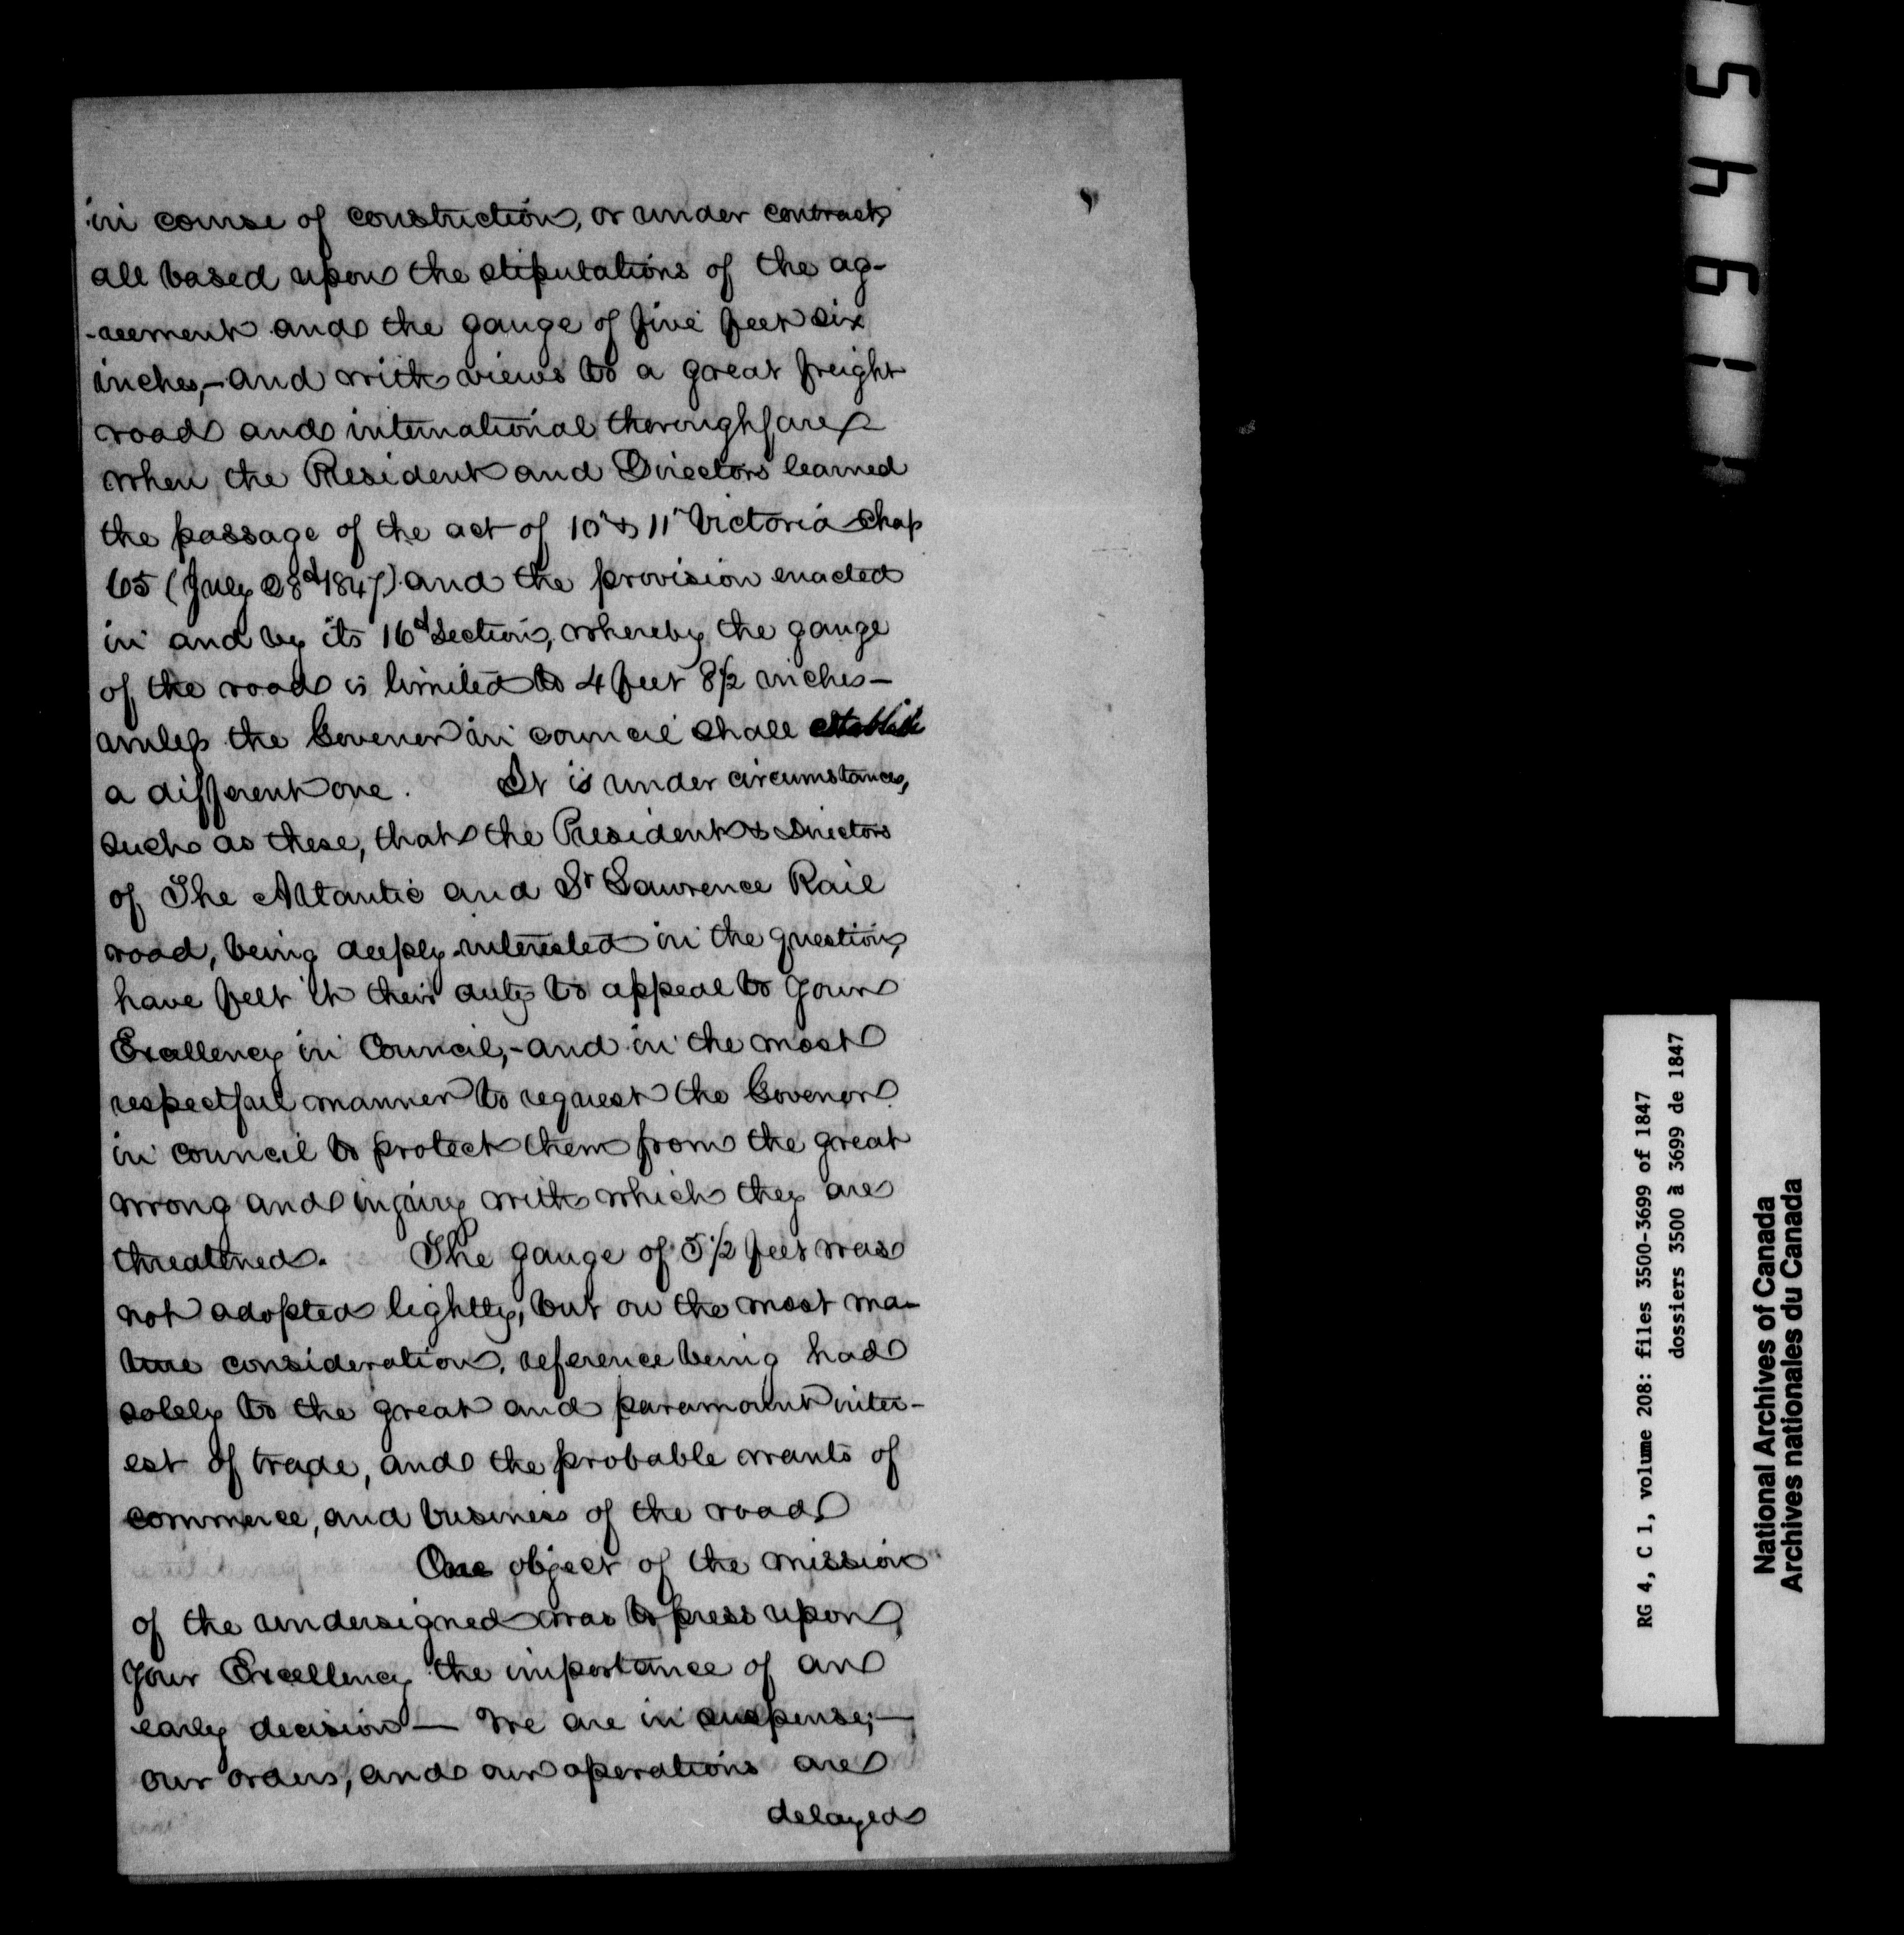 in course of construction, or under contract,
all based upon the stipulations of the ag-
-reement and the gauge of five feet six
inches,- and with views to a great freight
road and international thoroughfare
when the President and Directors learned
the passage of the act of 10" & 11" Victoria Chap
65 (July 28d 1847) and the provision enacted
in and by its 16d Section, whereby the gauge
of the road is limited to 4 feet 8 1/2 inches—
unless the Govenor in council shall establish
a different one. It is under circumstances,
such as these, that the President & Directors
of The Atlantic and St Lawrence Rail
road, being deeply interested in the question,
have felt it their duty to appeal to your
Excellency in Council,- and in the most
respectful manner to request the Govenor
in council to protect them from the great
wrong and injury with which they are
threatened. The gauge of 5 1/2 feet was
not adopted lightly, but on the most ma-
ture consideration, reference being had
solely to the great and paramount inter-
est of trade, and the probable wants of
commerce, and business of the road
One object of the mission
of the undersigned was to press upon
your Excellency the importance of an
early decision — We are in suspense;—
our orders, and our operations are
delayed
54491
RG 4, C 1, volume 208: files 3500-3699 of 1847
dossiers 3500 à 3699 de 1847
National Archives of Canada
Archives nationales du Canada